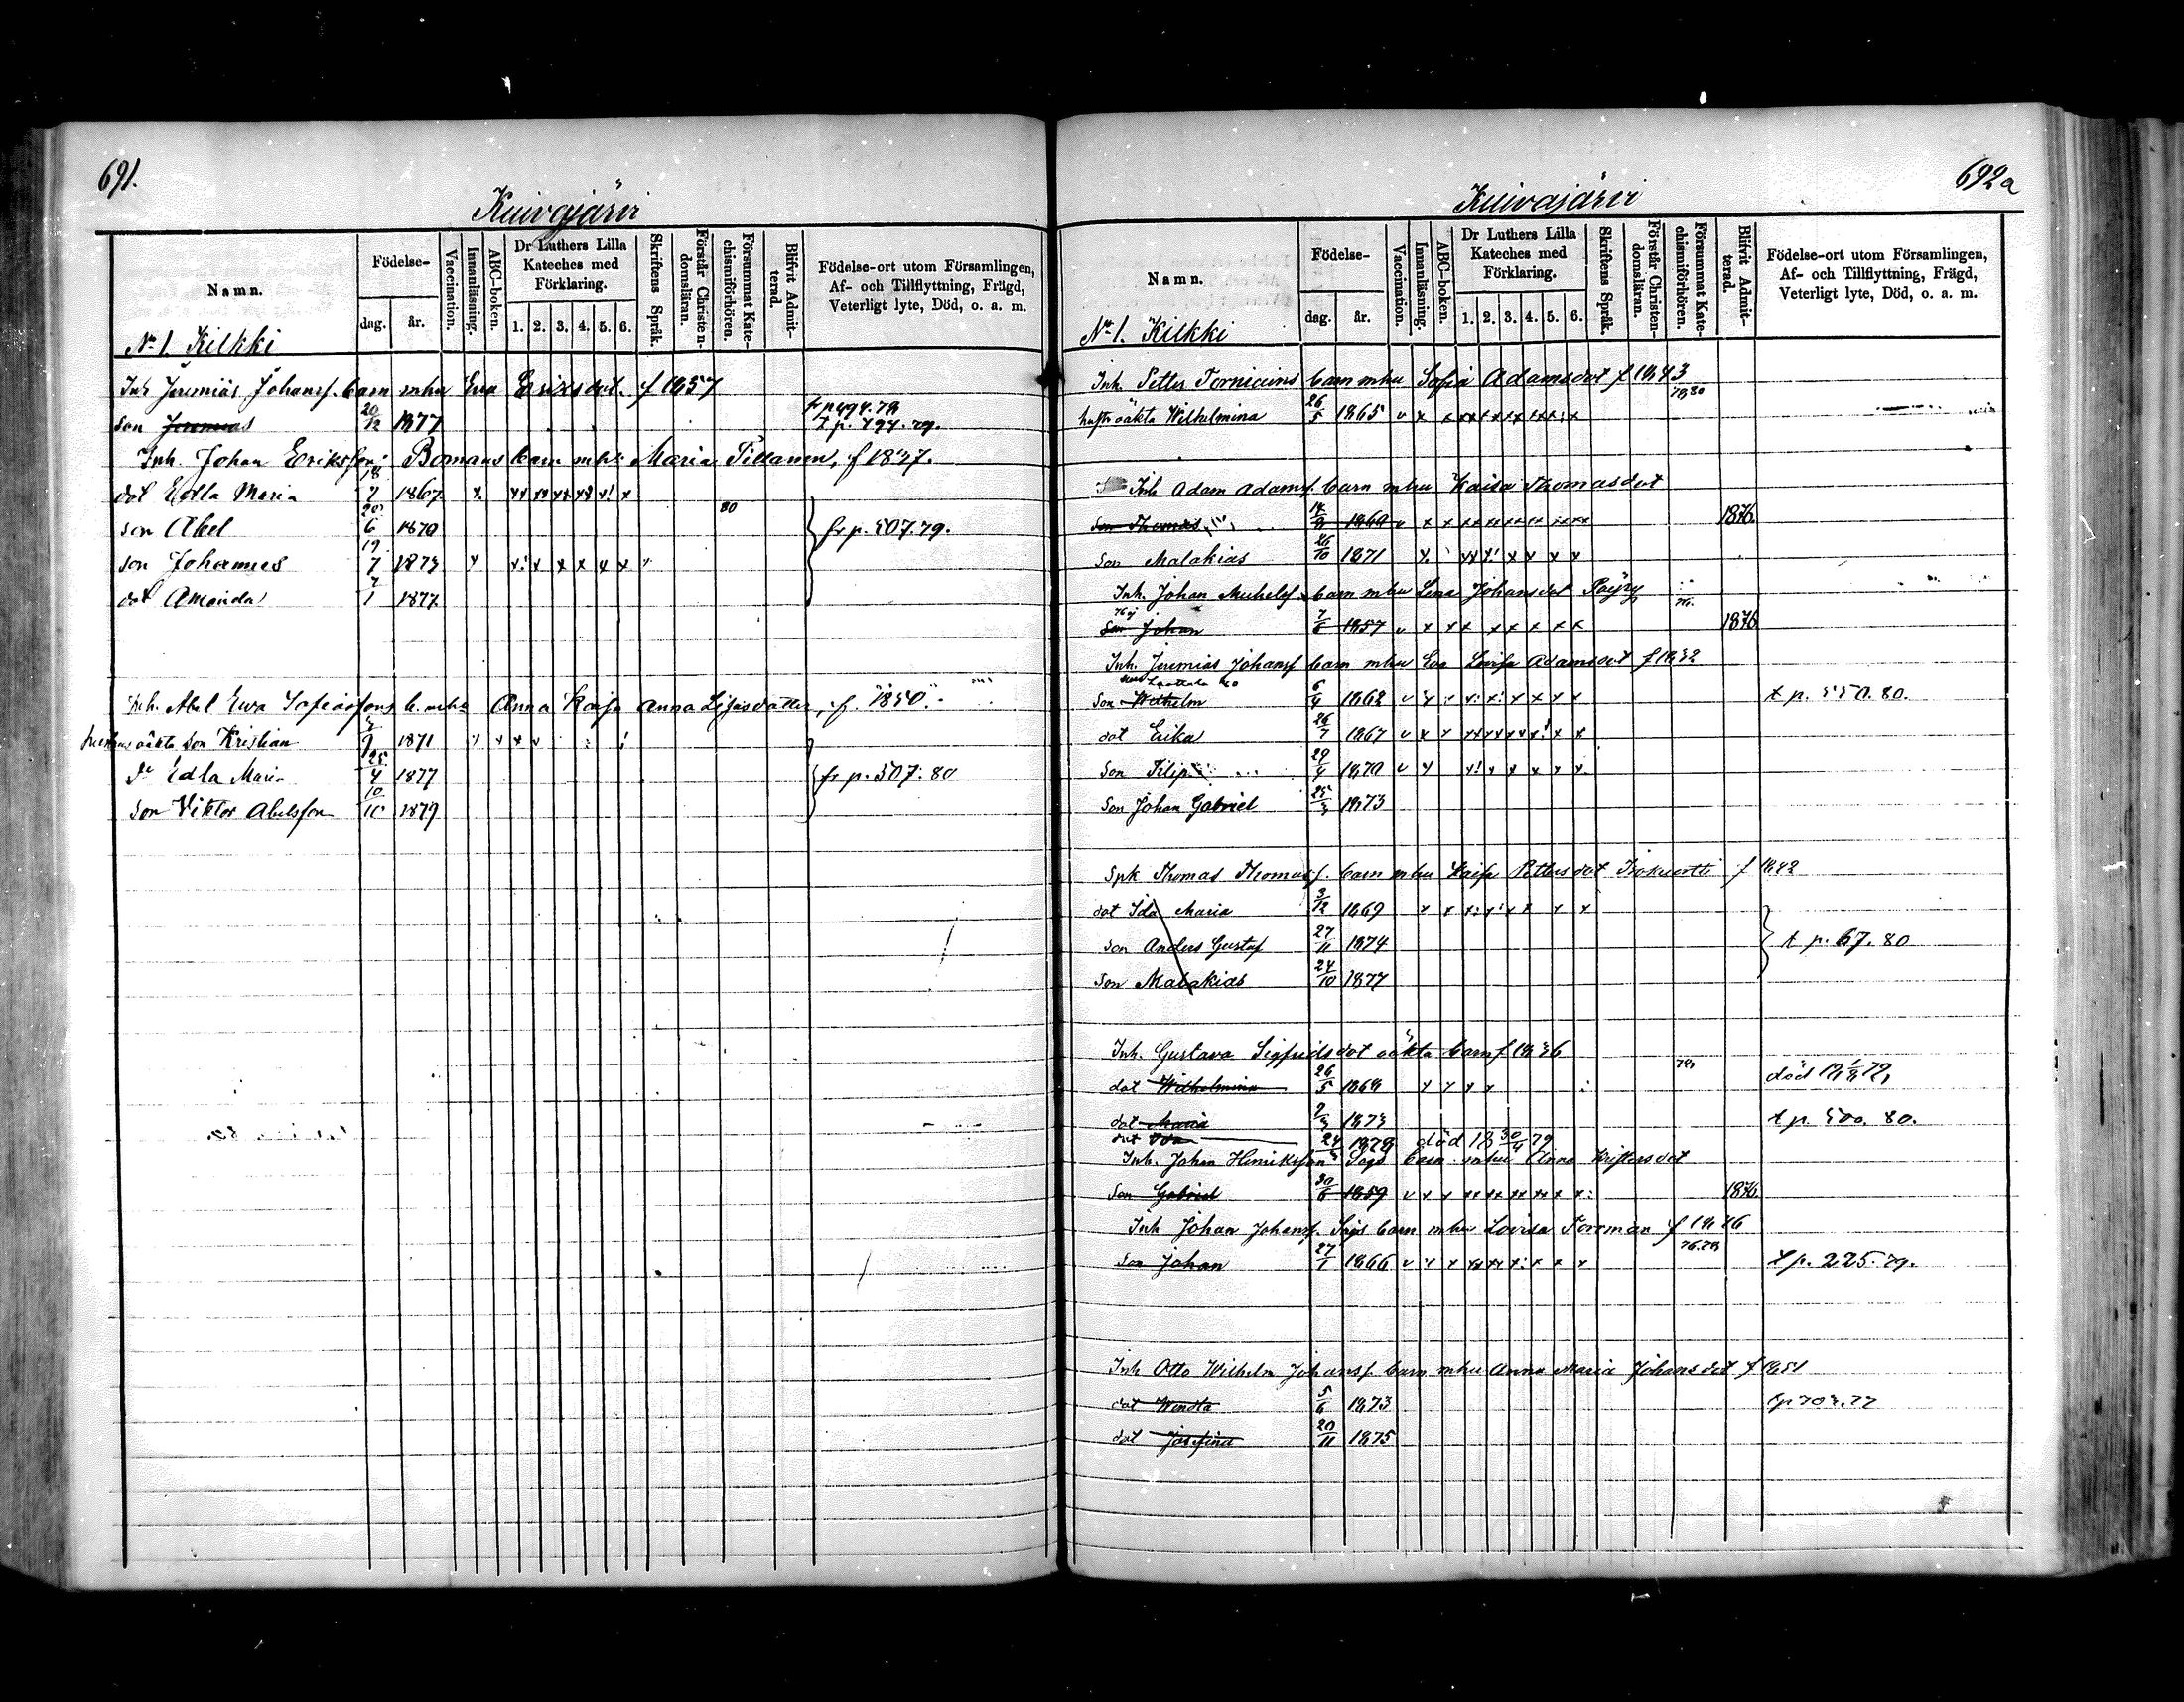 691.
Kuivajärvi
Namn.
Födelse-
dag.
år.
Vaccination.
Innanläsning.
ABC-boken.
Dr Luthers Lilla Kateches med Förklaring.
1. 2. 3. 4. 5. 6.
Skriftens Språk.
Förstår Christendomsläran.
Försummat Katechismiförhören.
Blifvit Admitterad.
Födelse-ort utom Församlingen, Af- och Tillflyttning, Frägd, Veterligt lyte, Död, o. a. m.
No 1. Kilkki
Inh Jeremias Johansf. barn mhu Eva Eriksdot. f 1857
son Jeremias 20/12 1877 fr p 494.78 t p. 794.79.
Inh. Johan Eriksson Bomans barn mhu Maria Tillanen, f 1837.
dot Edla Maria 18/7 1867 x xx xx xx x! x
80
son Abel 20/6 1870 fr p. 507.79.
son Johannes 19/7 1873
dot Amanda 7/1 1877
Inh. Abel Ewa Sofiasons b. mhu Anna Kajsa Anna Lisasdotter, f. 1850.
hustrus oäkta son Kristian 1871
De Edla Maria 25/4 1877 fr p. 507. 80
son Viktor Abelsson 10/10 1879
692a
Kuivajärvi
Namn.
Födelse-
dag.
år.
Vaccination.
Innanläsning.
ABC-boken.
Dr Luthers Lilla Kateches med Förklaring.
1. 2. 3. 4. 5. 6.
Skriftens Språk.
Förstår Christendomsläran.
Försummat Katechismiförhören.
Blifvit Admitterad.
Födelse-ort utom Församlingen, Af- och Tillflyttning, Frägd, Veterligt lyte, Död, o. a. m.
No 1. Kilkki
Inh. Petter Tornicius barn mhu Sofia Adamsdot f 1843
hustr oäkta Wilhelmina 26/5 1865
Inh Adam Adamsf. barn mhu Kaisa Thomasdot
son Thomas 1860 1876
son Malakias 26/10 1871
Inh. Johan Michelsf. barn mhu Lena Johansdot Pöyry
son Johan 7/6 1857 1876
Inh. Jeremias Johansf barn mhu Eva Lovisa Adamsdot f 1832
son Wilhelm 6/4 1862 t p. 550. 80.
dot Erika 26/7 1867
son Filip 29/4 1870
son Johan Gabriel 25/3 1873
Spk Thomas Thomasf. barn mhu Kaisa Pettersdot Isokuortti f 1842
dot Ida Maria 3/12 1869
son Anders Gustaf 27/11 1874 t p. 67. 80
son Malakias 24/10 1877
Inh. Gustava Sigfridsdot oäkta barn f 1836
dot Wilhelmina 26/5 1864
dot Maria 2/3 1873 t p. 500. 80.
dot Ida 1878 död 18 30/4 79
Inh. Johan Henriksson Sags barn mhu Anna Kristersdot
son Gabriel 30/6 1859 1876
Inh Johan Johansf. Sags barn mhu Lovisa Forsman
son Johan 27/1 1866 t p. 225.79.
Inh Otto Wilhelm Johansf. barn mhu Anna Maria Johansdot f 1851
dot Wendla 5/6 1873
dot Josefina 20/11 1875